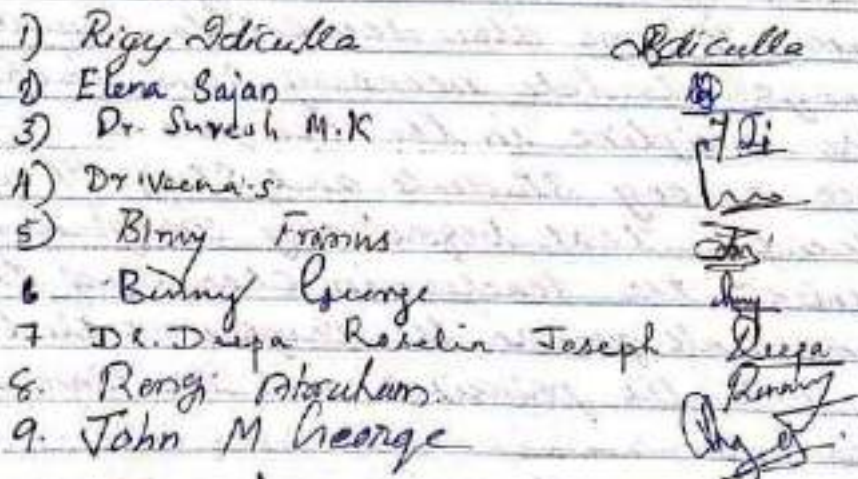 1) Rigy Idiculla Idiculla
2) Elena Sajan
3) Dr. Suresh M.K
4) Dr. Veena.S
5) Biny Francis
6 Binny George
7 DR. Deepa Roselin Joseph Deepa
8. Rengi Abraham
9. John M George